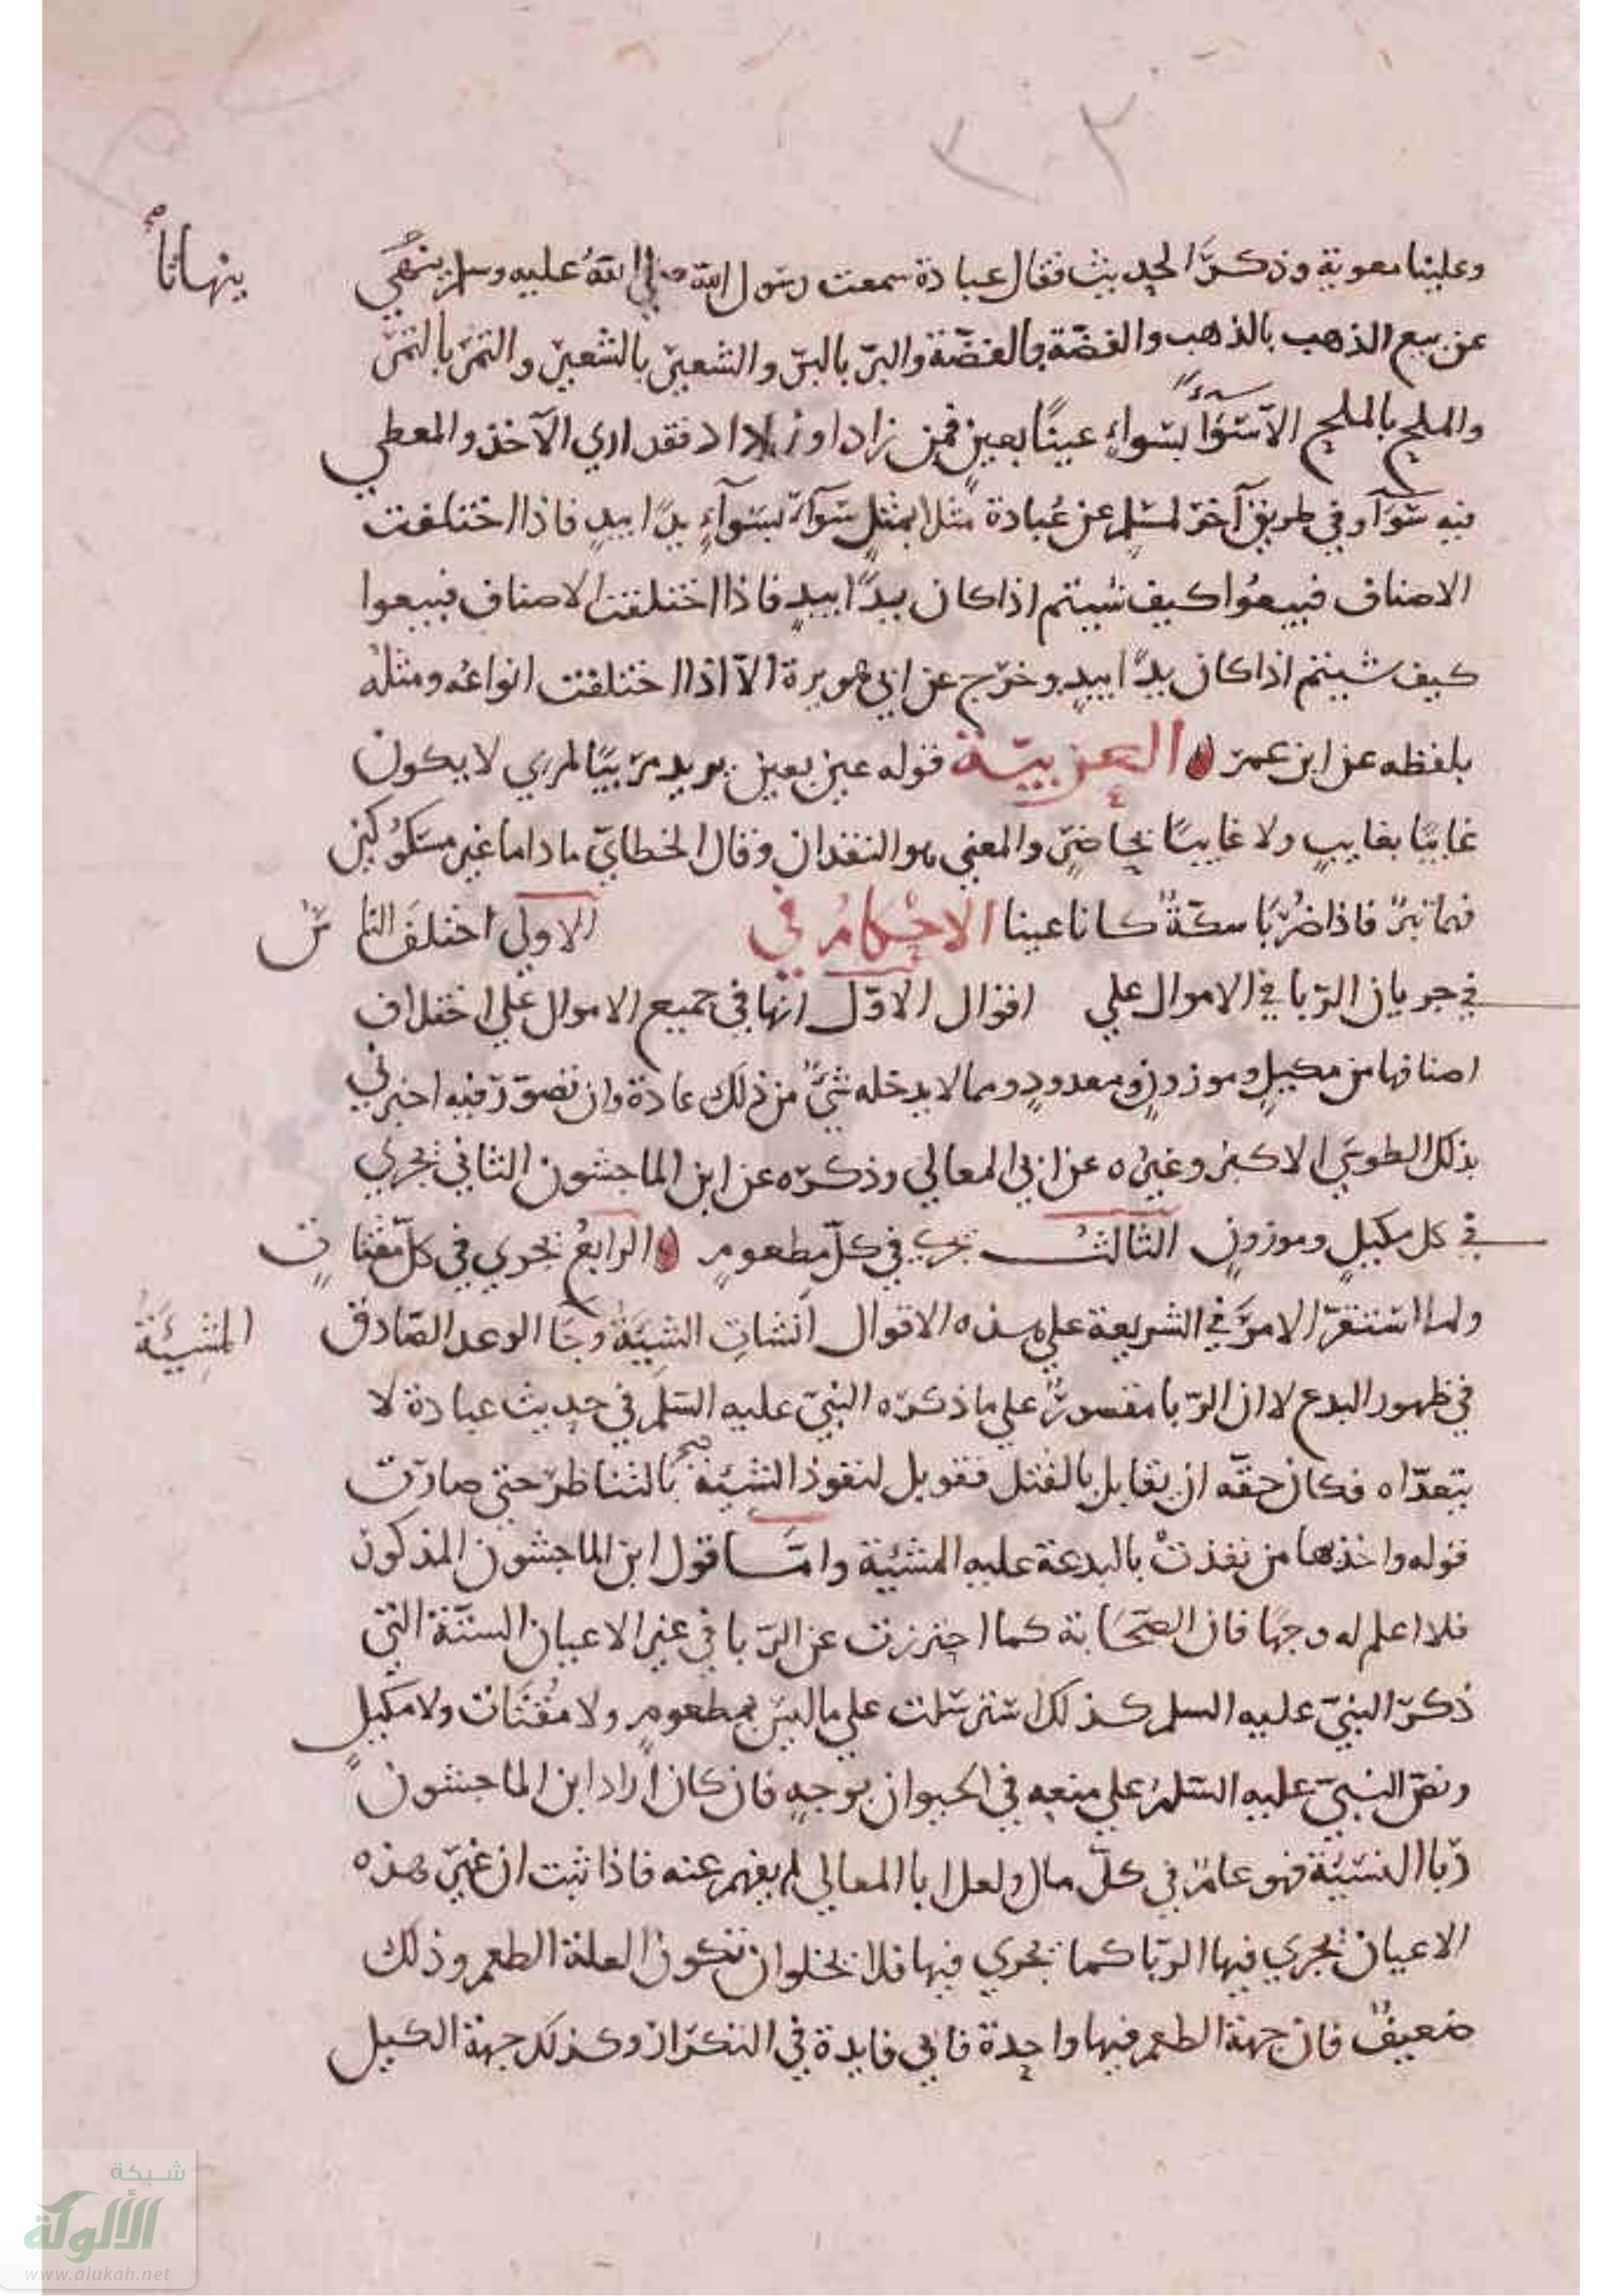 ٢٢
وعلينا معوية وذكر الحديث فقال عبادة سمعت رسول الله صلى الله عليه وسلم ينهي
ينهانا صح
عن بيع الذهب بالذهب والفضّة بالفضّة والبرّ بالبرّ والشعير بالشعير والتمر بالتمر
والملح بالملح الا سَوَآءً بسواءٍ عينًا بعينٍ فمن زاد او زداد فقد اربي الآخذ والمعطي
فيه سَوَآ وفي طريق آخر لمسلم عن عُبادة مثلا بمثلٍ سَوَآء بسَوآءٍ يدًا بيدٍ فاذا اختلفت
الاصناف فبيعُوا كيف شيتم اذا كان يدًا بيدٍ فاذا اختلفت الاصناف فبيعوا
كيف شيتم اذا كان يدًا بيدٍ وخرّج عن ابي هريرة الّا اذا اختلفت انواعُه ومثلُه
بلفظه عن ابن عمر العربيّة قوله عين بعين يريد مرَبيًا لمري لا يكون
غايبًا بغايبٍ ولا غايبًا بحاضرٍ والمعني هو النقدان وقال الخطابيّ ما داما غير مسكوكين
فهما تبرٌ فاذا ضُرِبَا سكّةً كانا عينا الاحكام في الاولي اختلفَ الناسُ
في جريان الرّبا في الاموال علي اقوال الاوّل انها في جميع الاموال علي اختلاف
اصنافها من مكيلٍ وموزونٍ ومعدودٍ ومما لا يدخله شيٌ من ذلك عادة وان تصوّر فيه اخبرني
بذلك الطوسي الاكبر وغيره عن ابي المعالي وذكره عن ابن الماجشون الثاني تجري
في كل مكيلٍ وموزونٍ الثالث تجري في كلّ مطعومٍ الرابعُ تجري في كلّ مقتاتٍ
ولما استقرّ الامرُ في الشريعة علي هذه الاقوال انشاتِ الشيَةُ وجَا الوعد الصّادق
المَشِيئَةُ
في ظهور البدع لا ان الرّبا مقصورٌ علي ما ذكره النبيّ عليه السّلم في حديث عبادة لا
يتعدّاه فكان حقّه ان يقابل بالقتل فقوبل لنفوذ المشيئة صح بالتناظر حتي صارت
قوله واخذها من نفذتْ بالبدعة عليه المشيئة وامّا قول ابن الماجشون المذكور
فلا اعلم له وجهًا فان الصّحَابة كما احترزت عن الرّبا في غير الاعيان الستّة التي
ذكر النبيّ عليه السلم كذلك استرسلت علي ما ليس بمطعومٍ ولا مُقتَات ولا مكيلٍ
ونصّ النبيّ عليه السّلم علي منعه في الحيوان بوجهٍ فان كان اراد ابن الماجشون
رّبا النسيئة فهو عامٌ في كلّ مال ولعل ابا المعالي لم يفهم عنه فاذا ثبت ان غير هذه
الاعيان تجري فيها الرّبا كما تجري فيها فلا يخلو ان تكون العلة الطعم وذلك
ضعيفٌ فان جهة الطعم فيها واحدة فاي فايدة في التكرار وكذلك جهة الكيل
شبكة
الألوكة
www.alukah.net